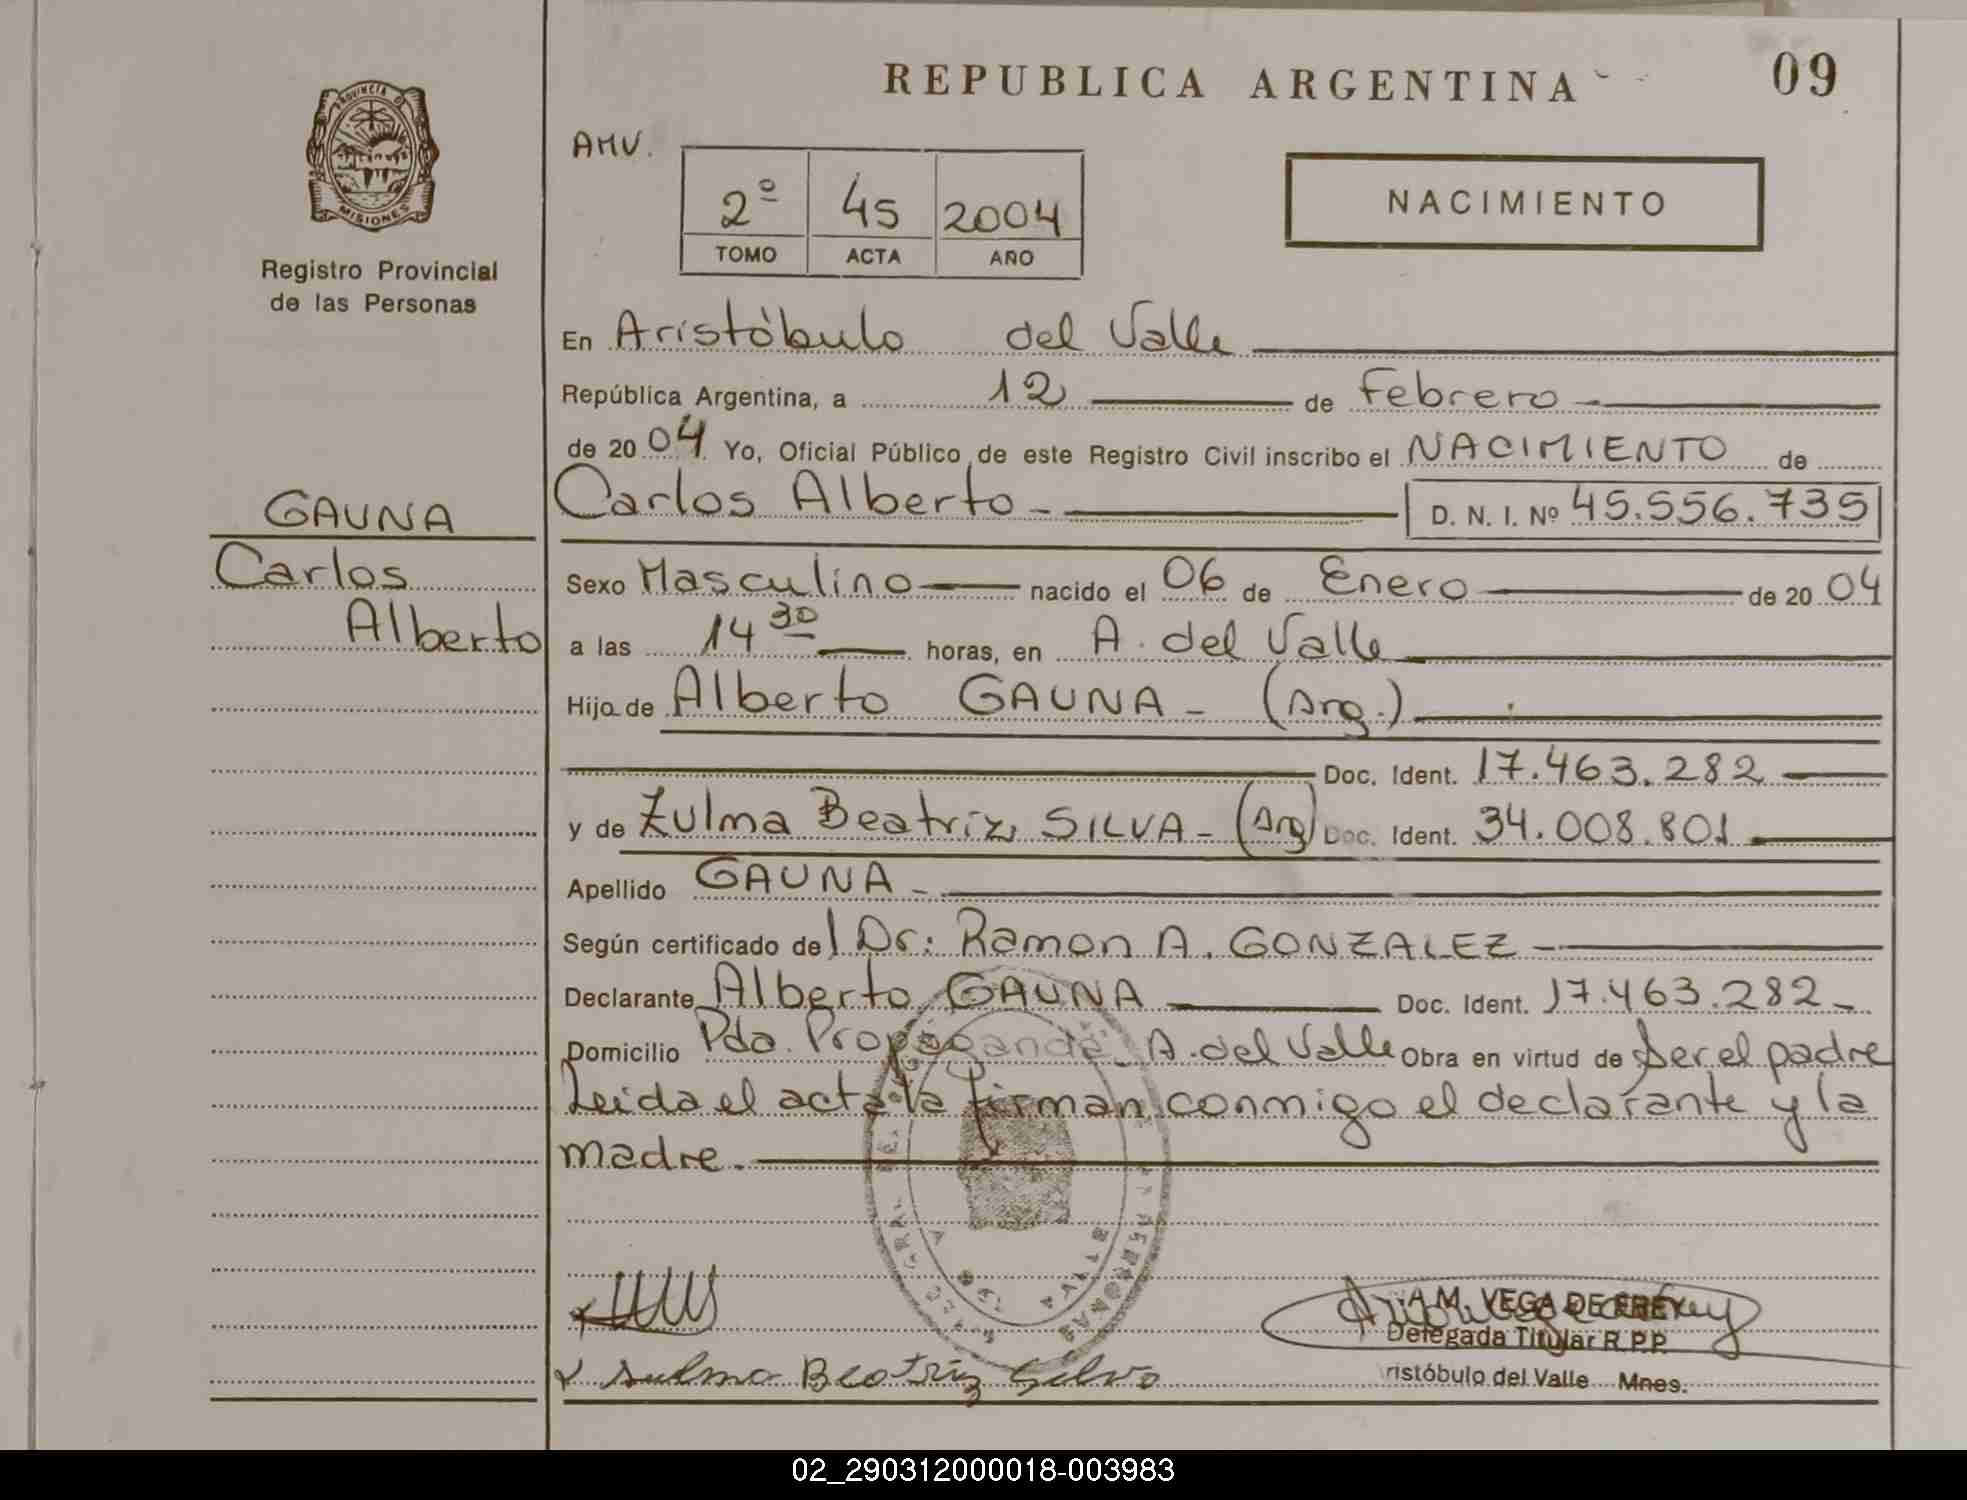 REPUBLICA ARGENTINA
09
PROVINCIA DE
MISIONES
Registro Provincial
de las Personas
AMV.
2º 45 2004
TOMO ACTA AÑO
NACIMIENTO
En Aristóbulo del Valle
República Argentina, a 12 de Febrero
de 2004 Yo, Oficial Público de este Registro Civil inscribo el NACIMIENTO de
Carlos Alberto - D. N. I. Nº 45.556.735
GAUNA
Carlos
Alberto
Sexo Masculino nacido el 06 de Enero de 2004
a las 14 30 horas, en A. del Valle
Hijo de Alberto GAUNA - (Arg.)
Doc. Ident. 17.463.282
y de Zulma Beatriz SILVA - (Arg) Doc. Ident. 34.008.801
Apellido GAUNA -
Según certificado del Dr: Ramon A. GONZALEZ -
Declarante Alberto GAUNA Doc. Ident. 17.463.282 -
Domicilio Pda. Propaganda - A. del Valle Obra en virtud de Ser el padre
Leida el acta la firman conmigo el declarante y la
madre.
A.M. VEGA DE FREY
Delegada Titular R.P.P.
ristóbulo del Valle Mnes.
Sulma Beatriz Silva
02_290312000018-003983